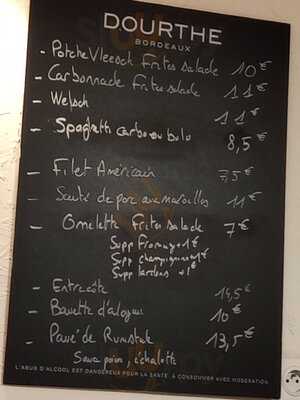 DOURTHE
BORDEAUX
- Potche Vleesch Frites salade 10€
- Carbonnade Frites salade 11€
- Welsch 11€
- Spaghetti Carbo ou bolo 8,5€
- Filet Américain 7,5€
- Sauté de porc au maroilles 11€
- Omelette Frites salade 7€
Supp Fromage 1€
Supp champignons 1€
Supp lardons 1€
- Entrecôte 14,5€
- Bavette d'aloyau 10€
- Pavé de Rumsteak 13,5€
Sauce poivre, échalotte
L'ABUS D'ALCOOL EST DANGEREUX POUR LA SANTÉ. À CONSOMMER AVEC MODÉRATION